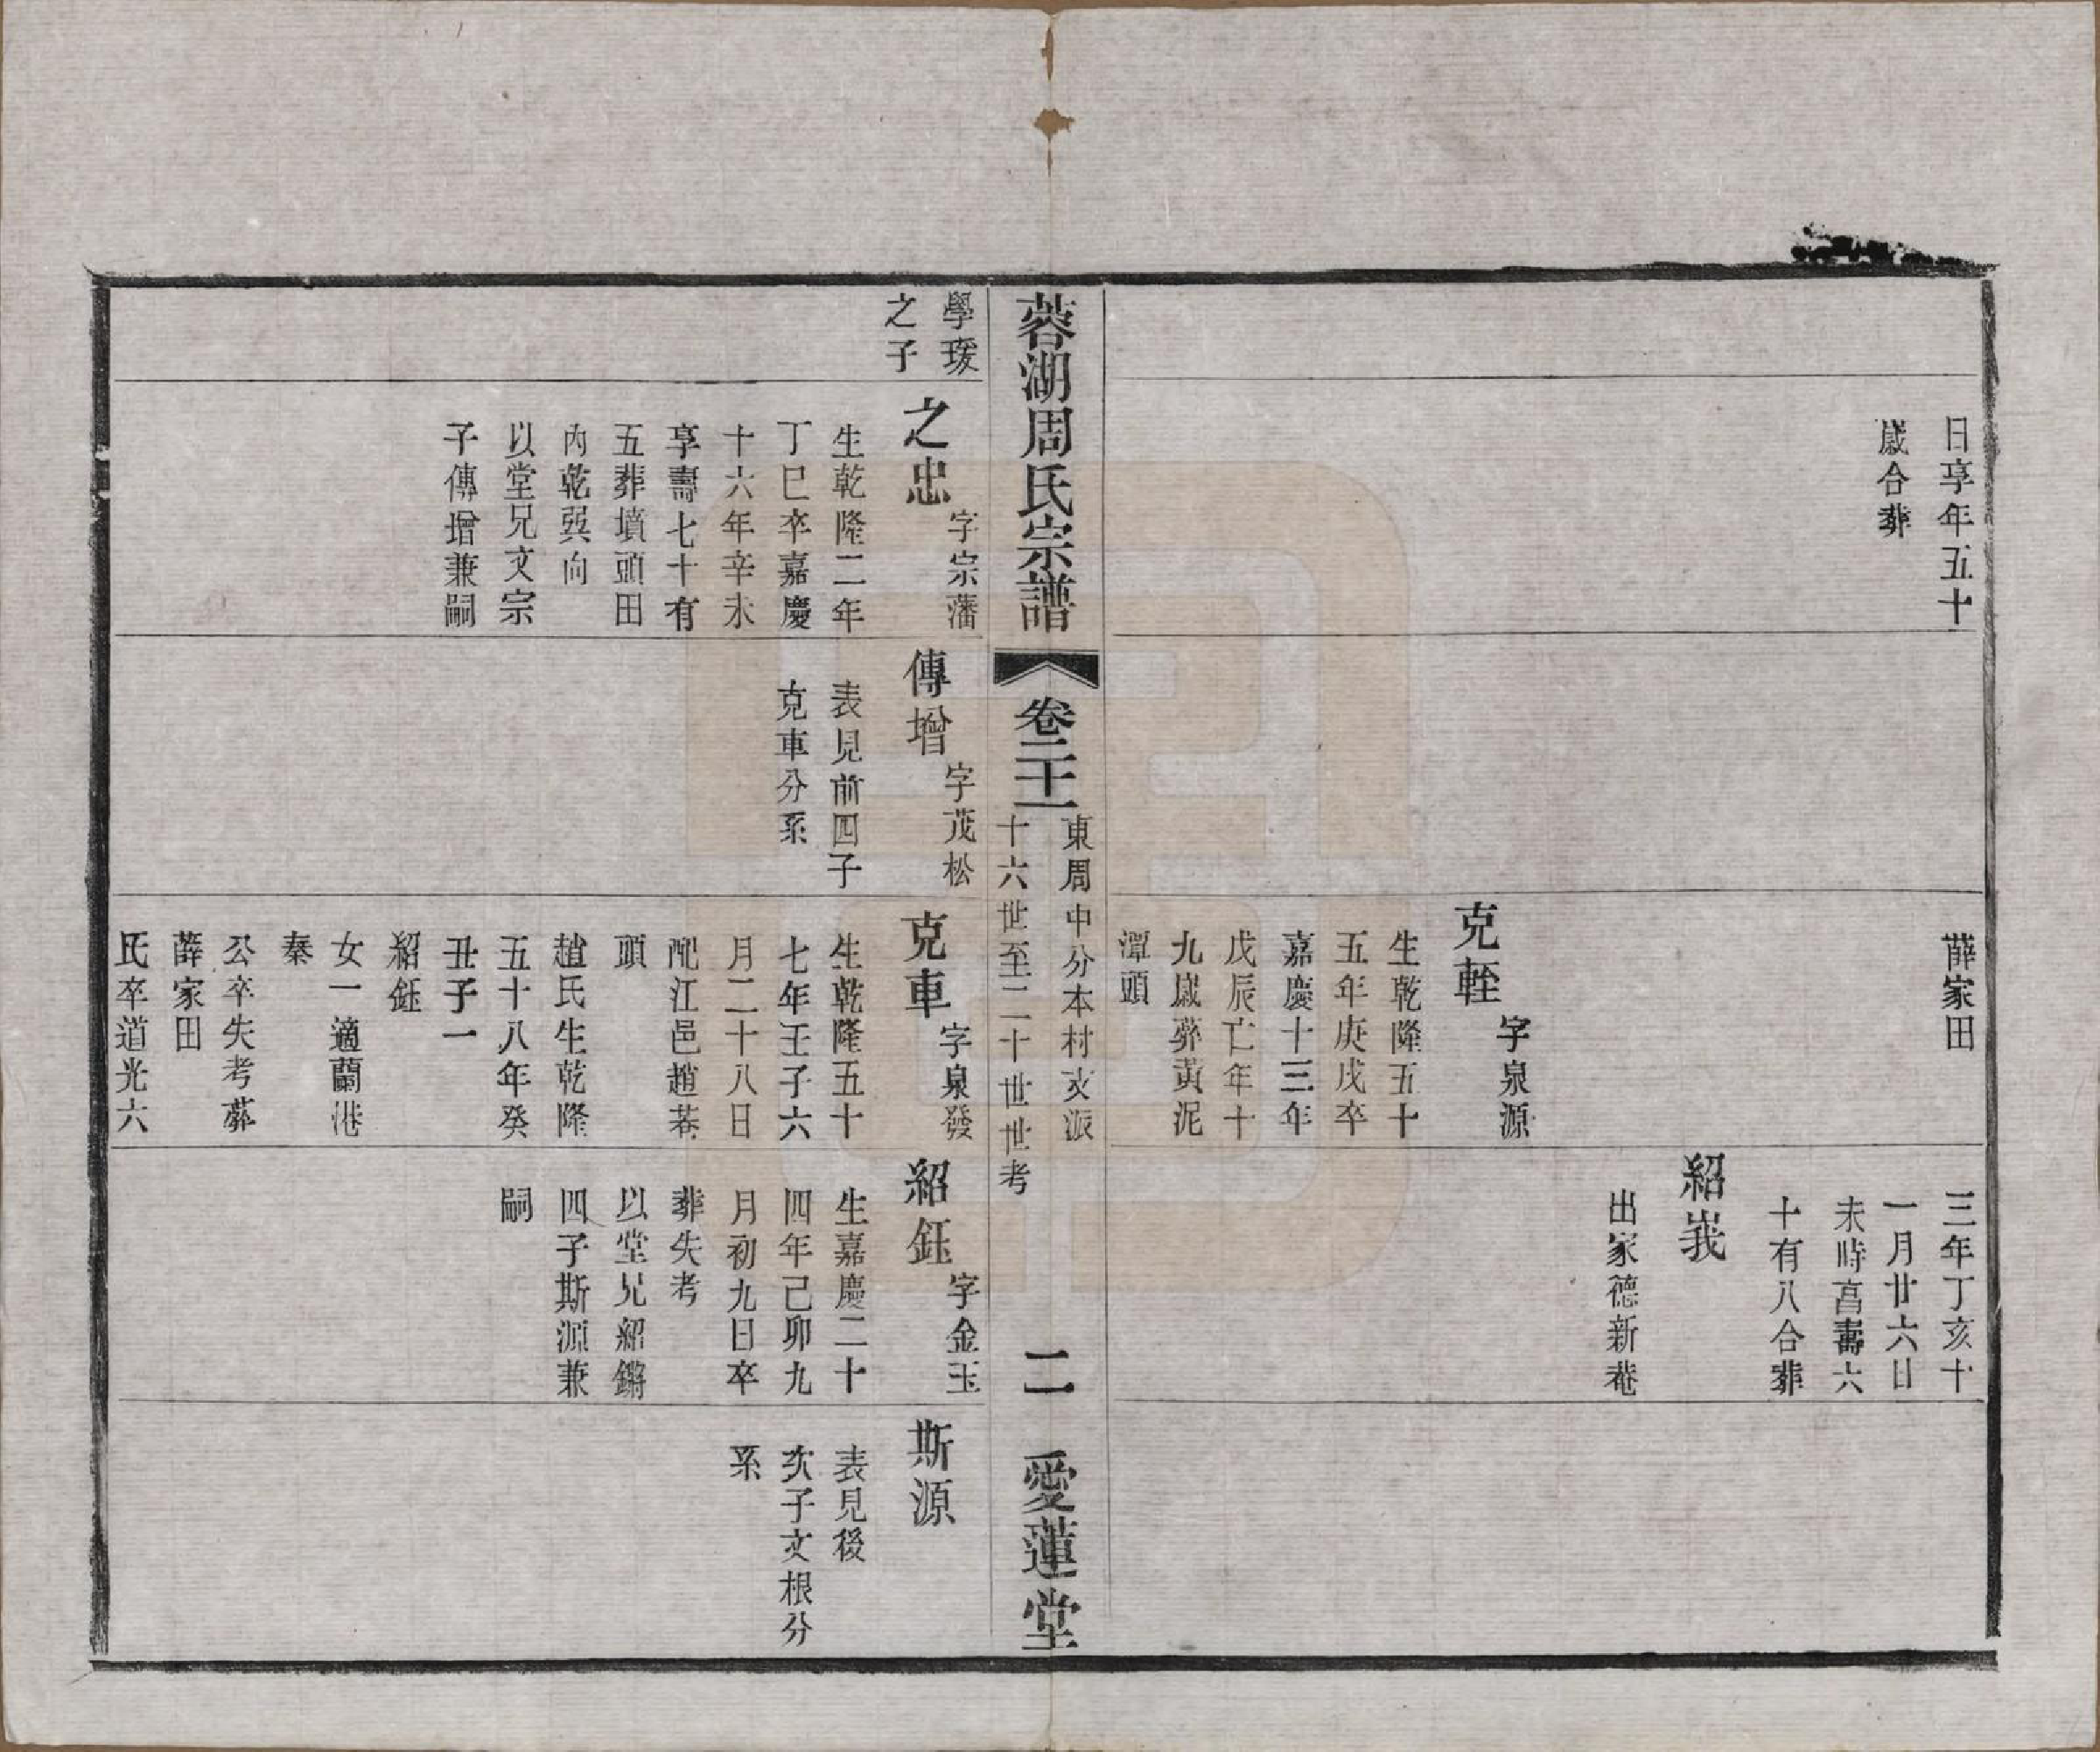 日享年五十
歲合葬
薛家田
克輊
字泉源
生乾隆五十
五年庚戌卒
嘉慶十三年
戊辰亡年十
九歲葬黃泥
潭頭
三年丁亥十
一月廿六日
未時享壽六
十有八合葬
紹峩
出家德新菴
蓉湖周氏宗譜
卷二十一
東周中分本村支派
十六世至二十世世考
二
愛蓮堂
學瑗
之子
之忠
字宗藩
生乾隆二年
丁巳卒嘉慶
十六年辛未
享壽七十有
五葬墳頭田
內乾巽向
以堂兄文宗
子傳增兼嗣
傳增
字茂松
表見前四子
克車分系
克車
字泉發
生乾隆五十
七年壬子六
月二十八日
配江邑趙菴
頭
趙氏生乾隆
五十八年癸
丑子一
紹鈺
女一適蘭港
秦
公卒失考葬
薛家田
氏卒道光六
紹鈺
字金玉
生嘉慶二十
四年己卯九
月初九日卒
葬失考
以堂兄紹鏘
四子斯源兼
嗣
斯源
表見後
次子文根分
系